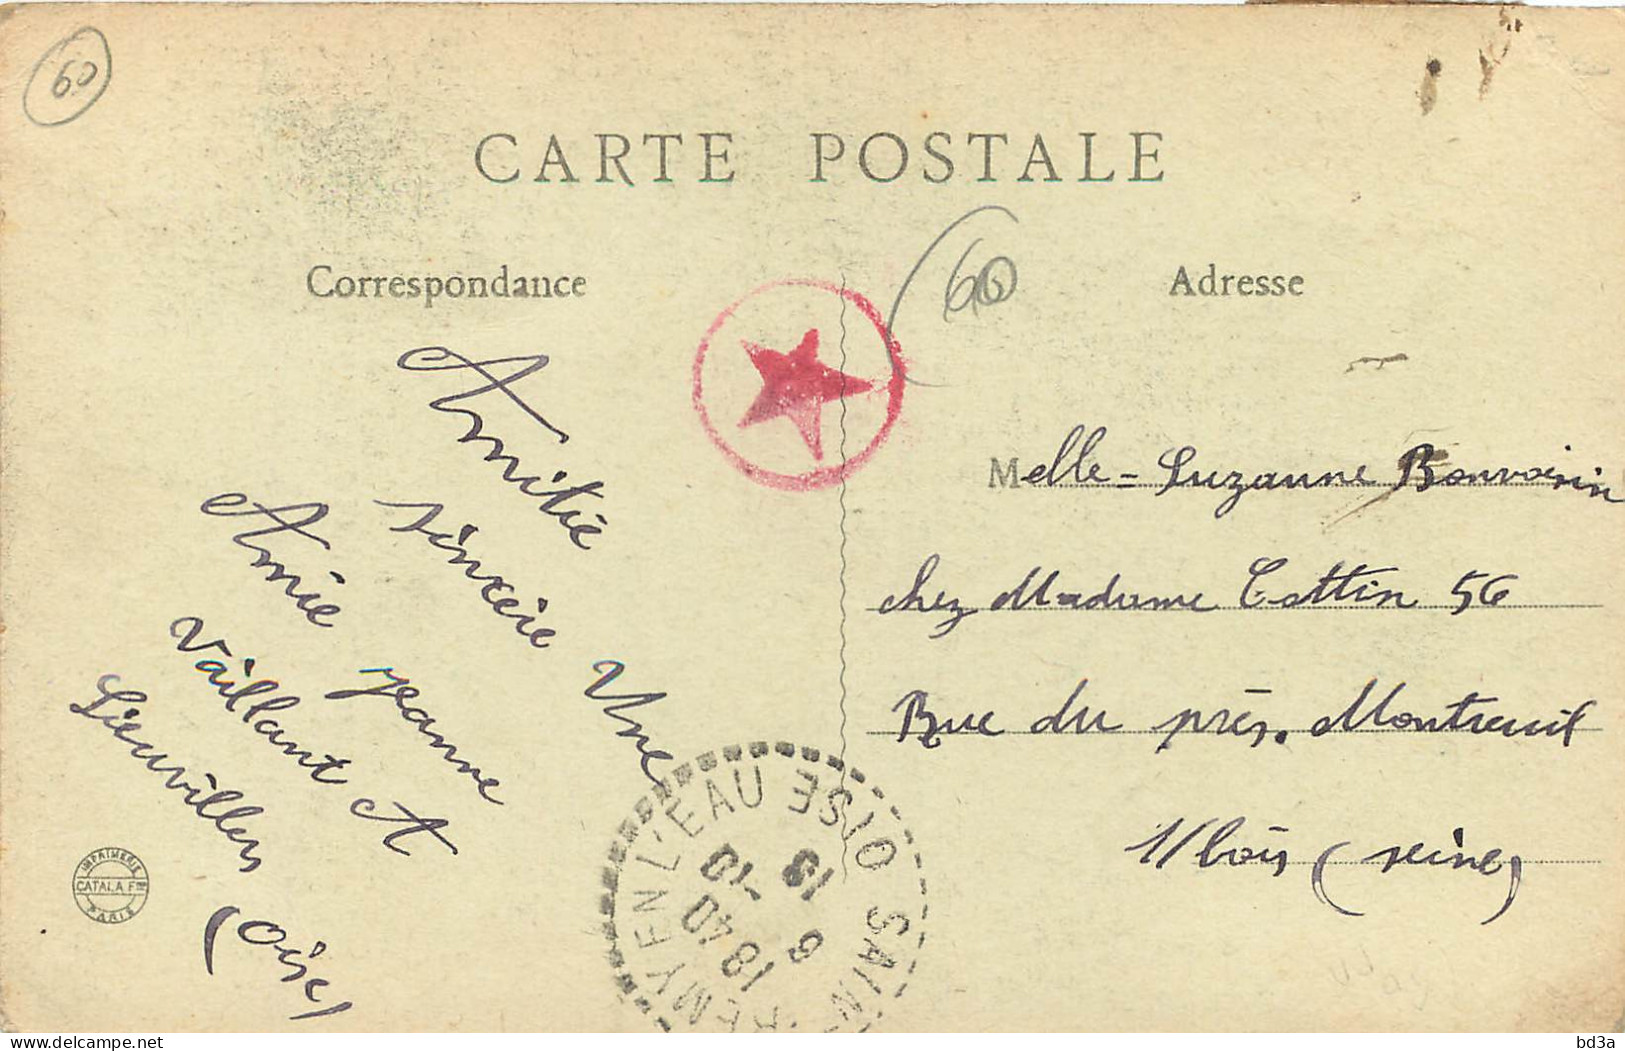 60
CARTE POSTALE
Correspondance
Adresse
60
Amitié
sincèie Une
Amie Jeanne
Vaillant A
Lieuvillers
(Oise)
Melle = Suzanne Bonvoisin
chez Madame Cottin 56
Rue du près. Montreuil
s/bois (seine)
IMPRIMERIE
CATALA Fres
PARIS
SAINT REMY EN L'EAU OISE
18 40
8 -10
18
www.delcampe.net
bd3a